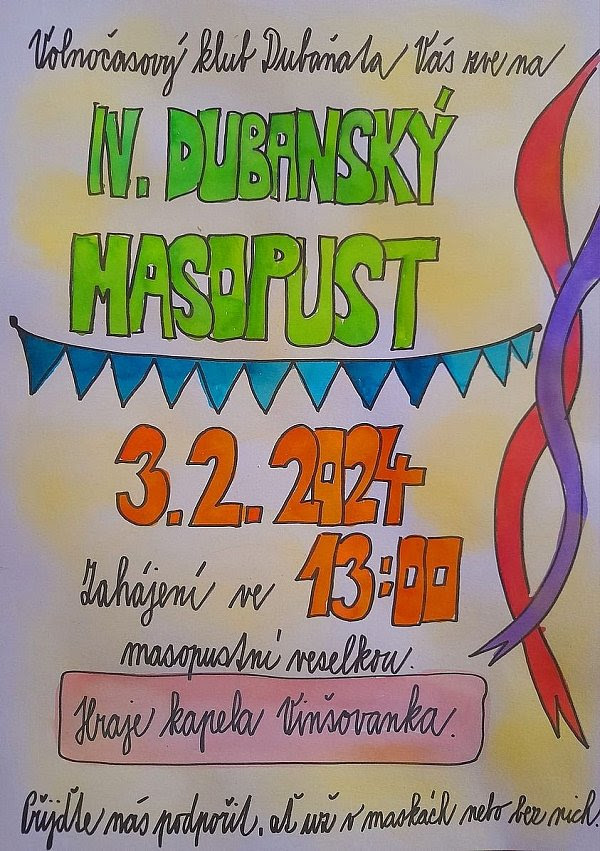 Volnočasový klub Dubaňata Vás zve na
IV. DUBANSKÝ
MASOPUST
3.2.2024
Zahájení ve 13:00
masopustní veselkou.
Hraje kapela Vinšovanka.
Přijďte nás podpořit, ať už v maskách nebo bez nich.